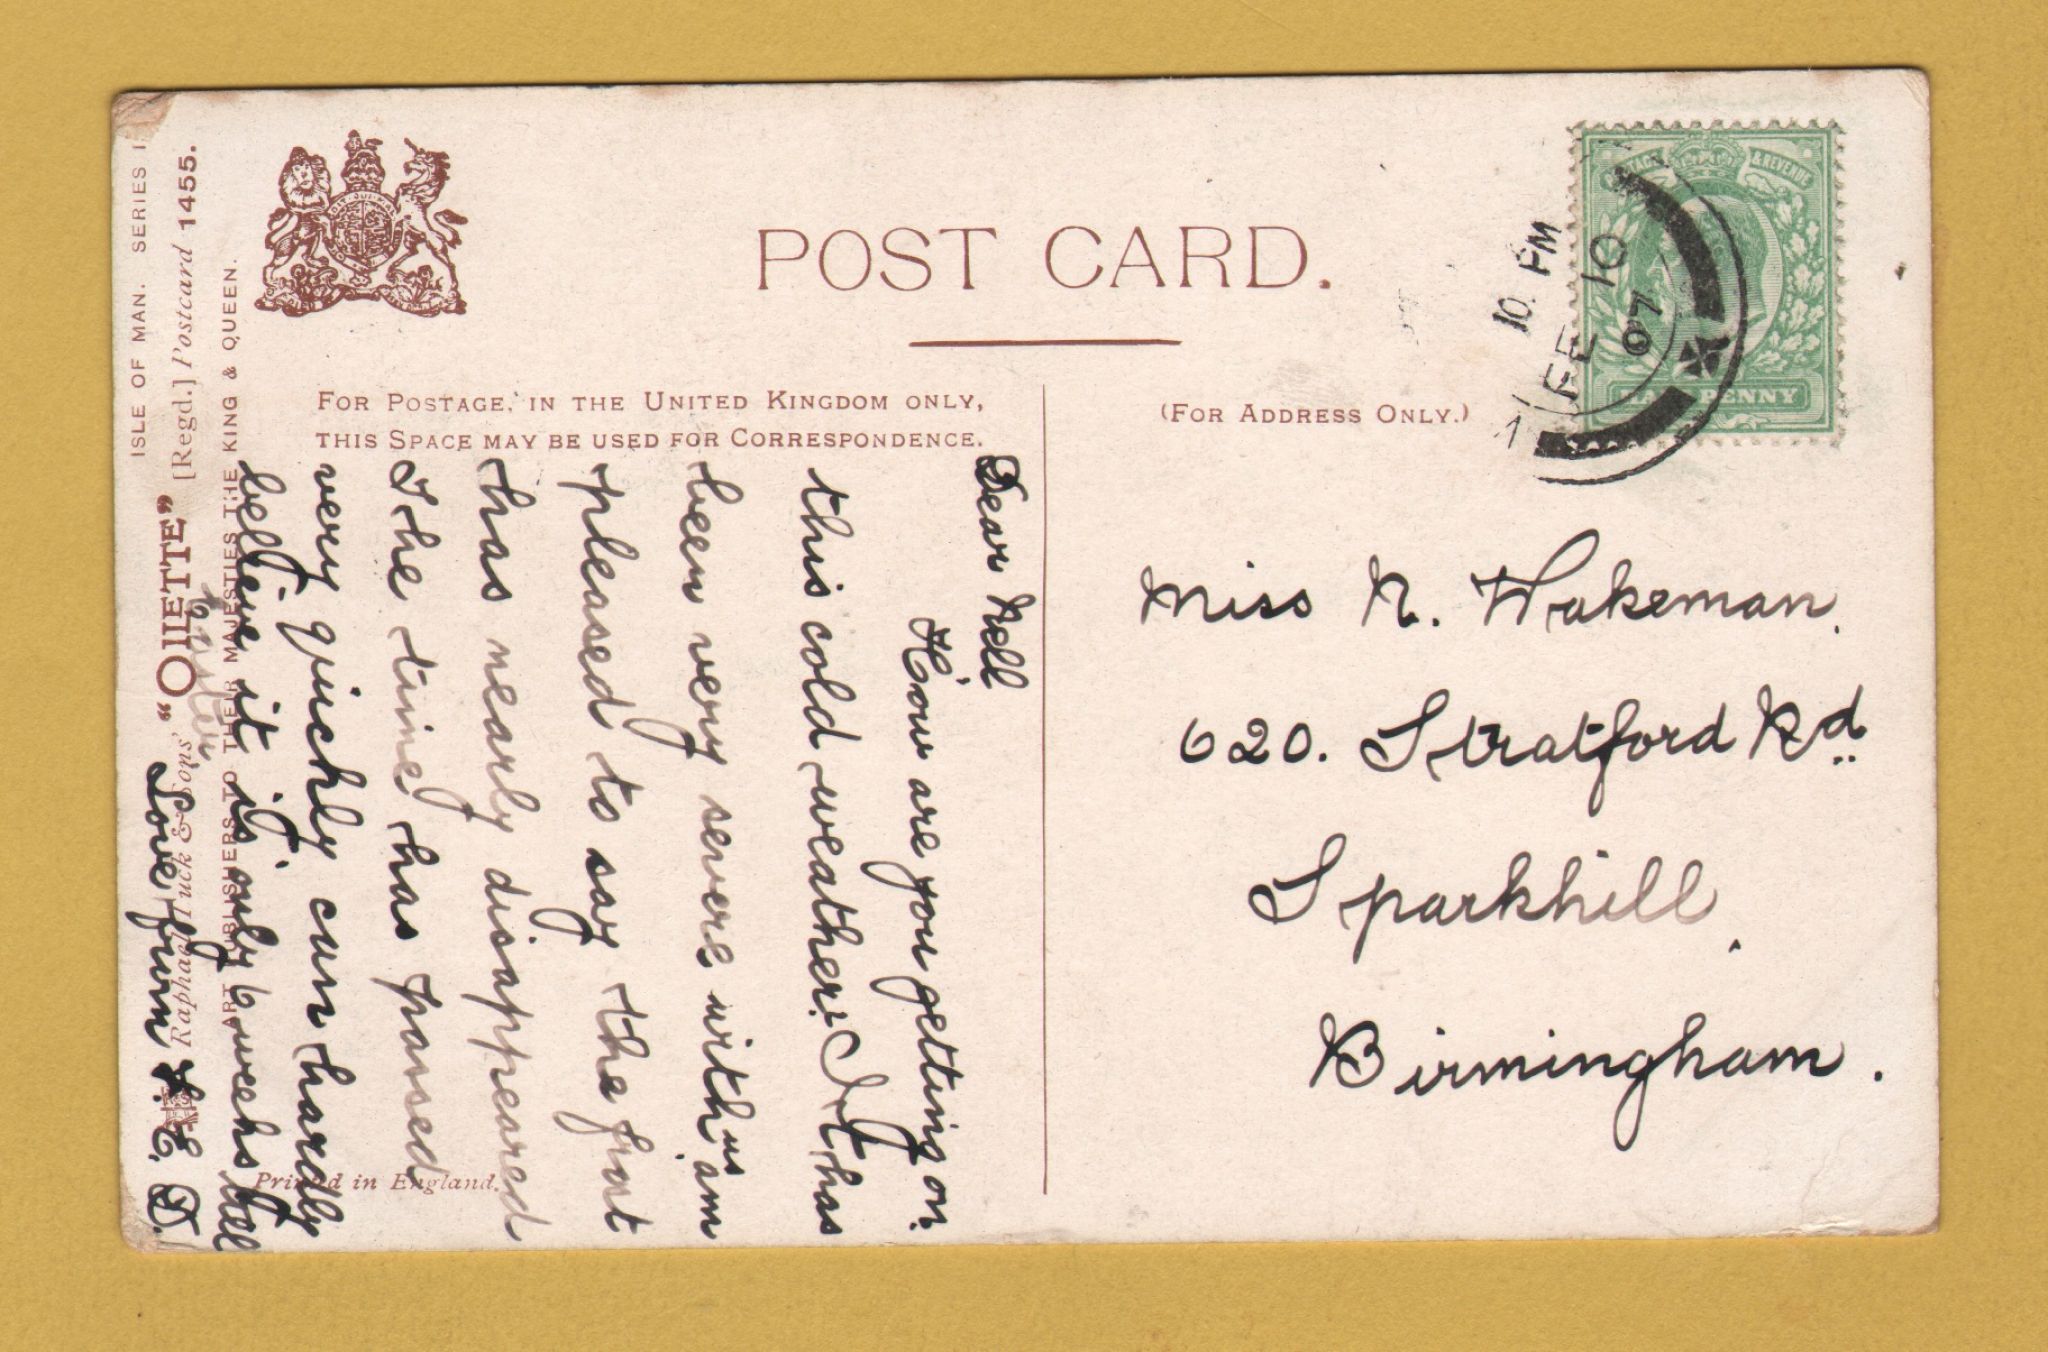 ISLE OF MAN. SERIES I
"OILETTE" [Regd.] Postcard 1455.
Raphael Tuck & Sons'
ART PUBLISHERS TO THEIR MAJESTIES THE KING & QUEEN.
POST CARD.
FOR POSTAGE, IN THE UNITED KINGDOM ONLY,
THIS SPACE MAY BE USED FOR CORRESPONDENCE.
(FOR ADDRESS ONLY.)
POSTAGE & REVENUE
HALFPENNY
10. PM
FE 10
07
Dear Nell
How are you getting on
this cold weather. It has
been very severe with us am
pleased to say the frost
has nearly disappeared
The time has passed
very quickly can hardly
believe it is only 6 weeks till
Easter
Love from
E. D.
Miss N. Wakeman.
620. Stratford Rd
Sparkhill,
Birmingham.
Printed in England.